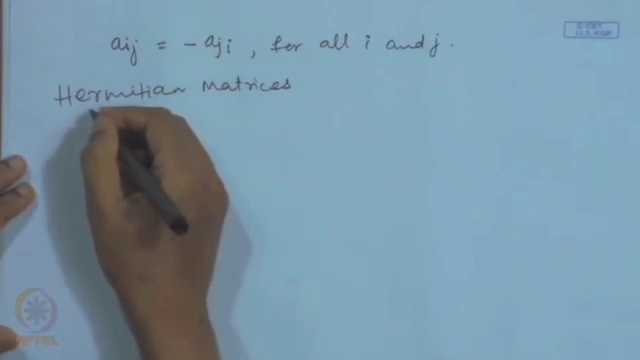 aij = - aji , for all i and j.
Hermitian Matrices
© CET
I.I.T. KGP
NPTEL